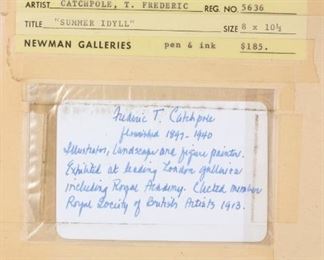 ARTIST CATCHPOLE, T. FREDERIC REG. NO. 5636
TITLE "SUMMER IDYLL" SIZE 8 x 10½
NEWMAN GALLERIES pen & ink $185.
Frederic T. Catchpole
flourished 1897-1940
Illustrator, landscape and figure painter.
Exhibited at leading London galleries
including Royal Academy. Elected member
Royal Society of British Artists 1913.